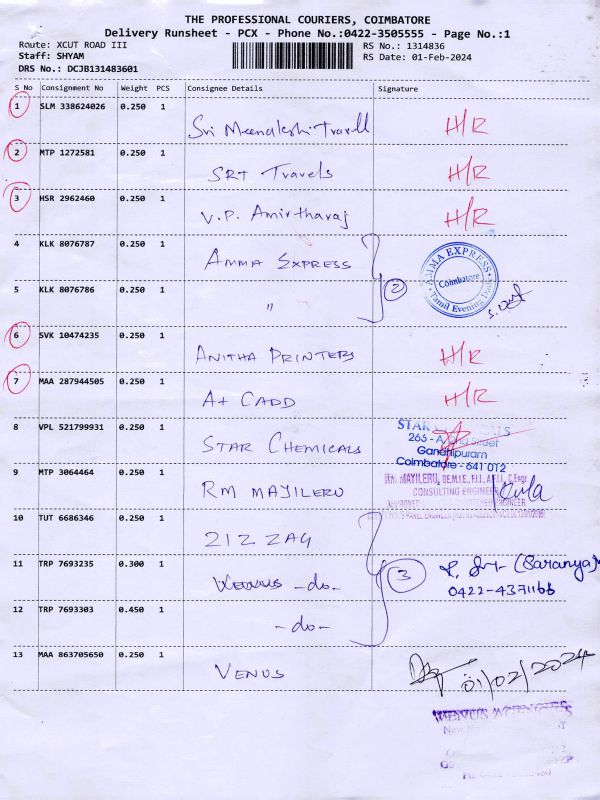 THE PROFESSIONAL COURIERS, COIMBATORE
Delivery Runsheet - PCX - Phone No.:0422-3505555 - Page No.:1
Route: XCUT ROAD III
RS No.: 1314836
Staff: SHYAM
RS Date: 01-Feb-2024
DRS No.: DCJB131483601
S No Consignment No Weight PCS Consignee Details Signature
1 SLM 338624026 0.250 1
Sri Meenakshi Travell H/R
2 MTP 1272581 0.250 1
SRT Travels H/R
3 HSR 2962460 0.250 1
V.P. Amirtharaj H/R
4 KLK 8076787 0.250 1
AMMA EXPRESS
2
AMMA EXPRESS
Coimbatore
Tamil Evening
5 KLK 8076786 0.250 1
"
6 SVK 10474235 0.250 1
ANITHA PRINTERS H/R
7 MAA 287944505 0.250 1
A+ CADD H/R
8 VPL 521799931 0.250 1
STAR CHEMICALS
STAR
Street
Gandhipuram
Coimbatore - 641 012
9 MTP 3064464 0.250 1
RM MAYILERU
RM. MAYILERU,
CONSULTING ENGINEER
10 TUT 6686346 0.250 1
ZIZ ZAG
11 TRP 7693235 0.300 1
-do-
3
(Saranya)
0422-4371166
12 TRP 7693303 0.450 1
-do-
13 MAA 863705650 0.250 1
VENUS
01/02/2024
VENUS AGENCIES